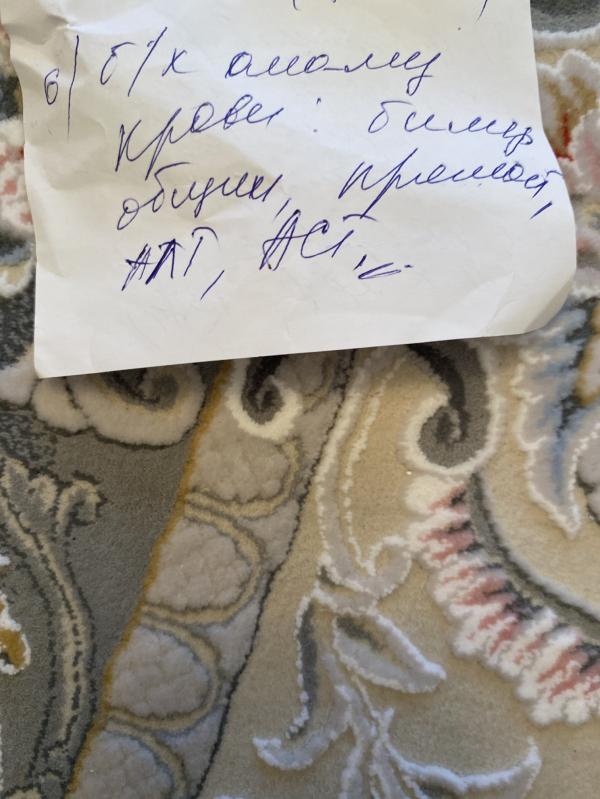 6) б/х анализ
крови: билир
общий, прямой,
АЛТ, АСТ.